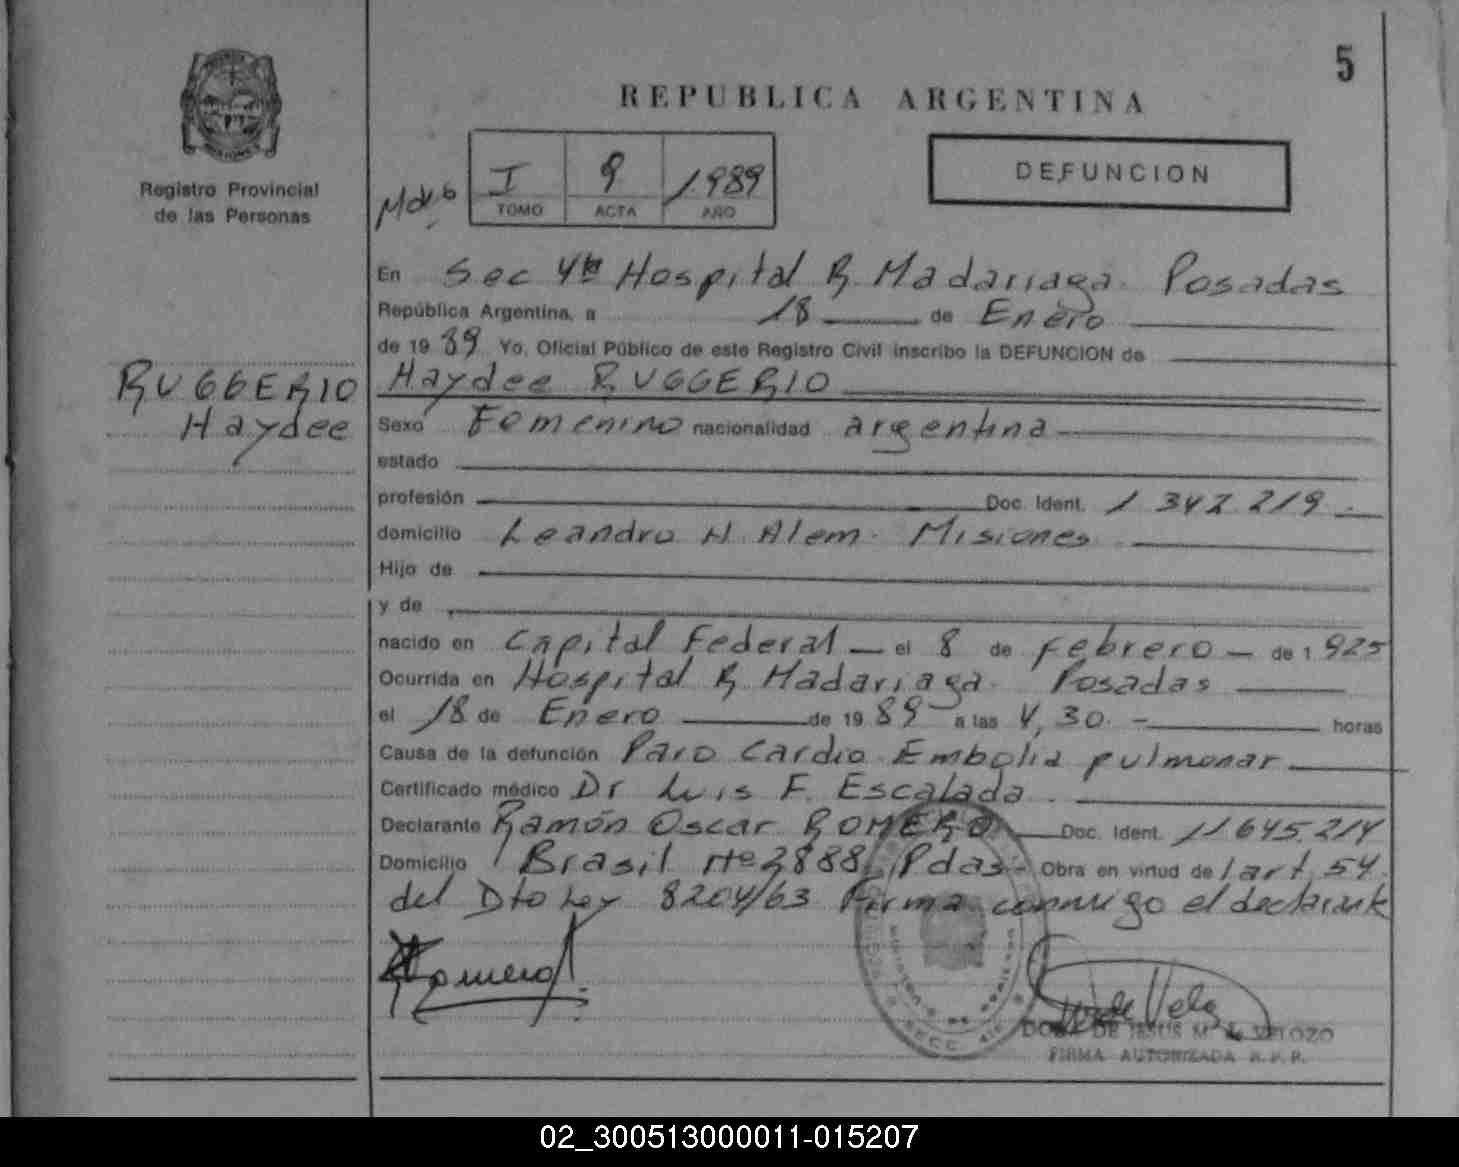 5
REPUBLICA ARGENTINA
Registro Provincial
de las Personas
I 9 1989
TOMO ACTA AÑO
DEFUNCION
En Sec 4ta Hospital R. Madariaga. Posadas
República Argentina, a 18 de Enero
de 1989 Yo, Oficial Público de este Registro Civil inscribo la DEFUNCION de
RUGGERIO
Haydee
Haydee RUGGERIO
Sexo Femenino nacionalidad argentina
estado
profesión Doc. Ident. 1 342 219
domicilio Leandro N. Alem. Misiones
Hijo de
y de
nacido en Capital Federal — el 8 de febrero — de 1925
Ocurrida en Hospital R. Madariaga. Posadas
el 18 de Enero de 1989 a las 4,30. - horas
Causa de la defunción Paro Cardio Embolia pulmonar
Certificado médico Dr Luis F. Escalada
Declarante Ramón Oscar ROMERO Doc. Ident. 11.645.214
Domicilio Brasil Nº 3888 Pdas - Obra en virtud de art. 54
del Dto Ley 8204/63 Firma conmigo el declarante
DE JESUS M. VELOZO
FIRMA AUTORIZADA R. P. P.
02_300513000011-015207